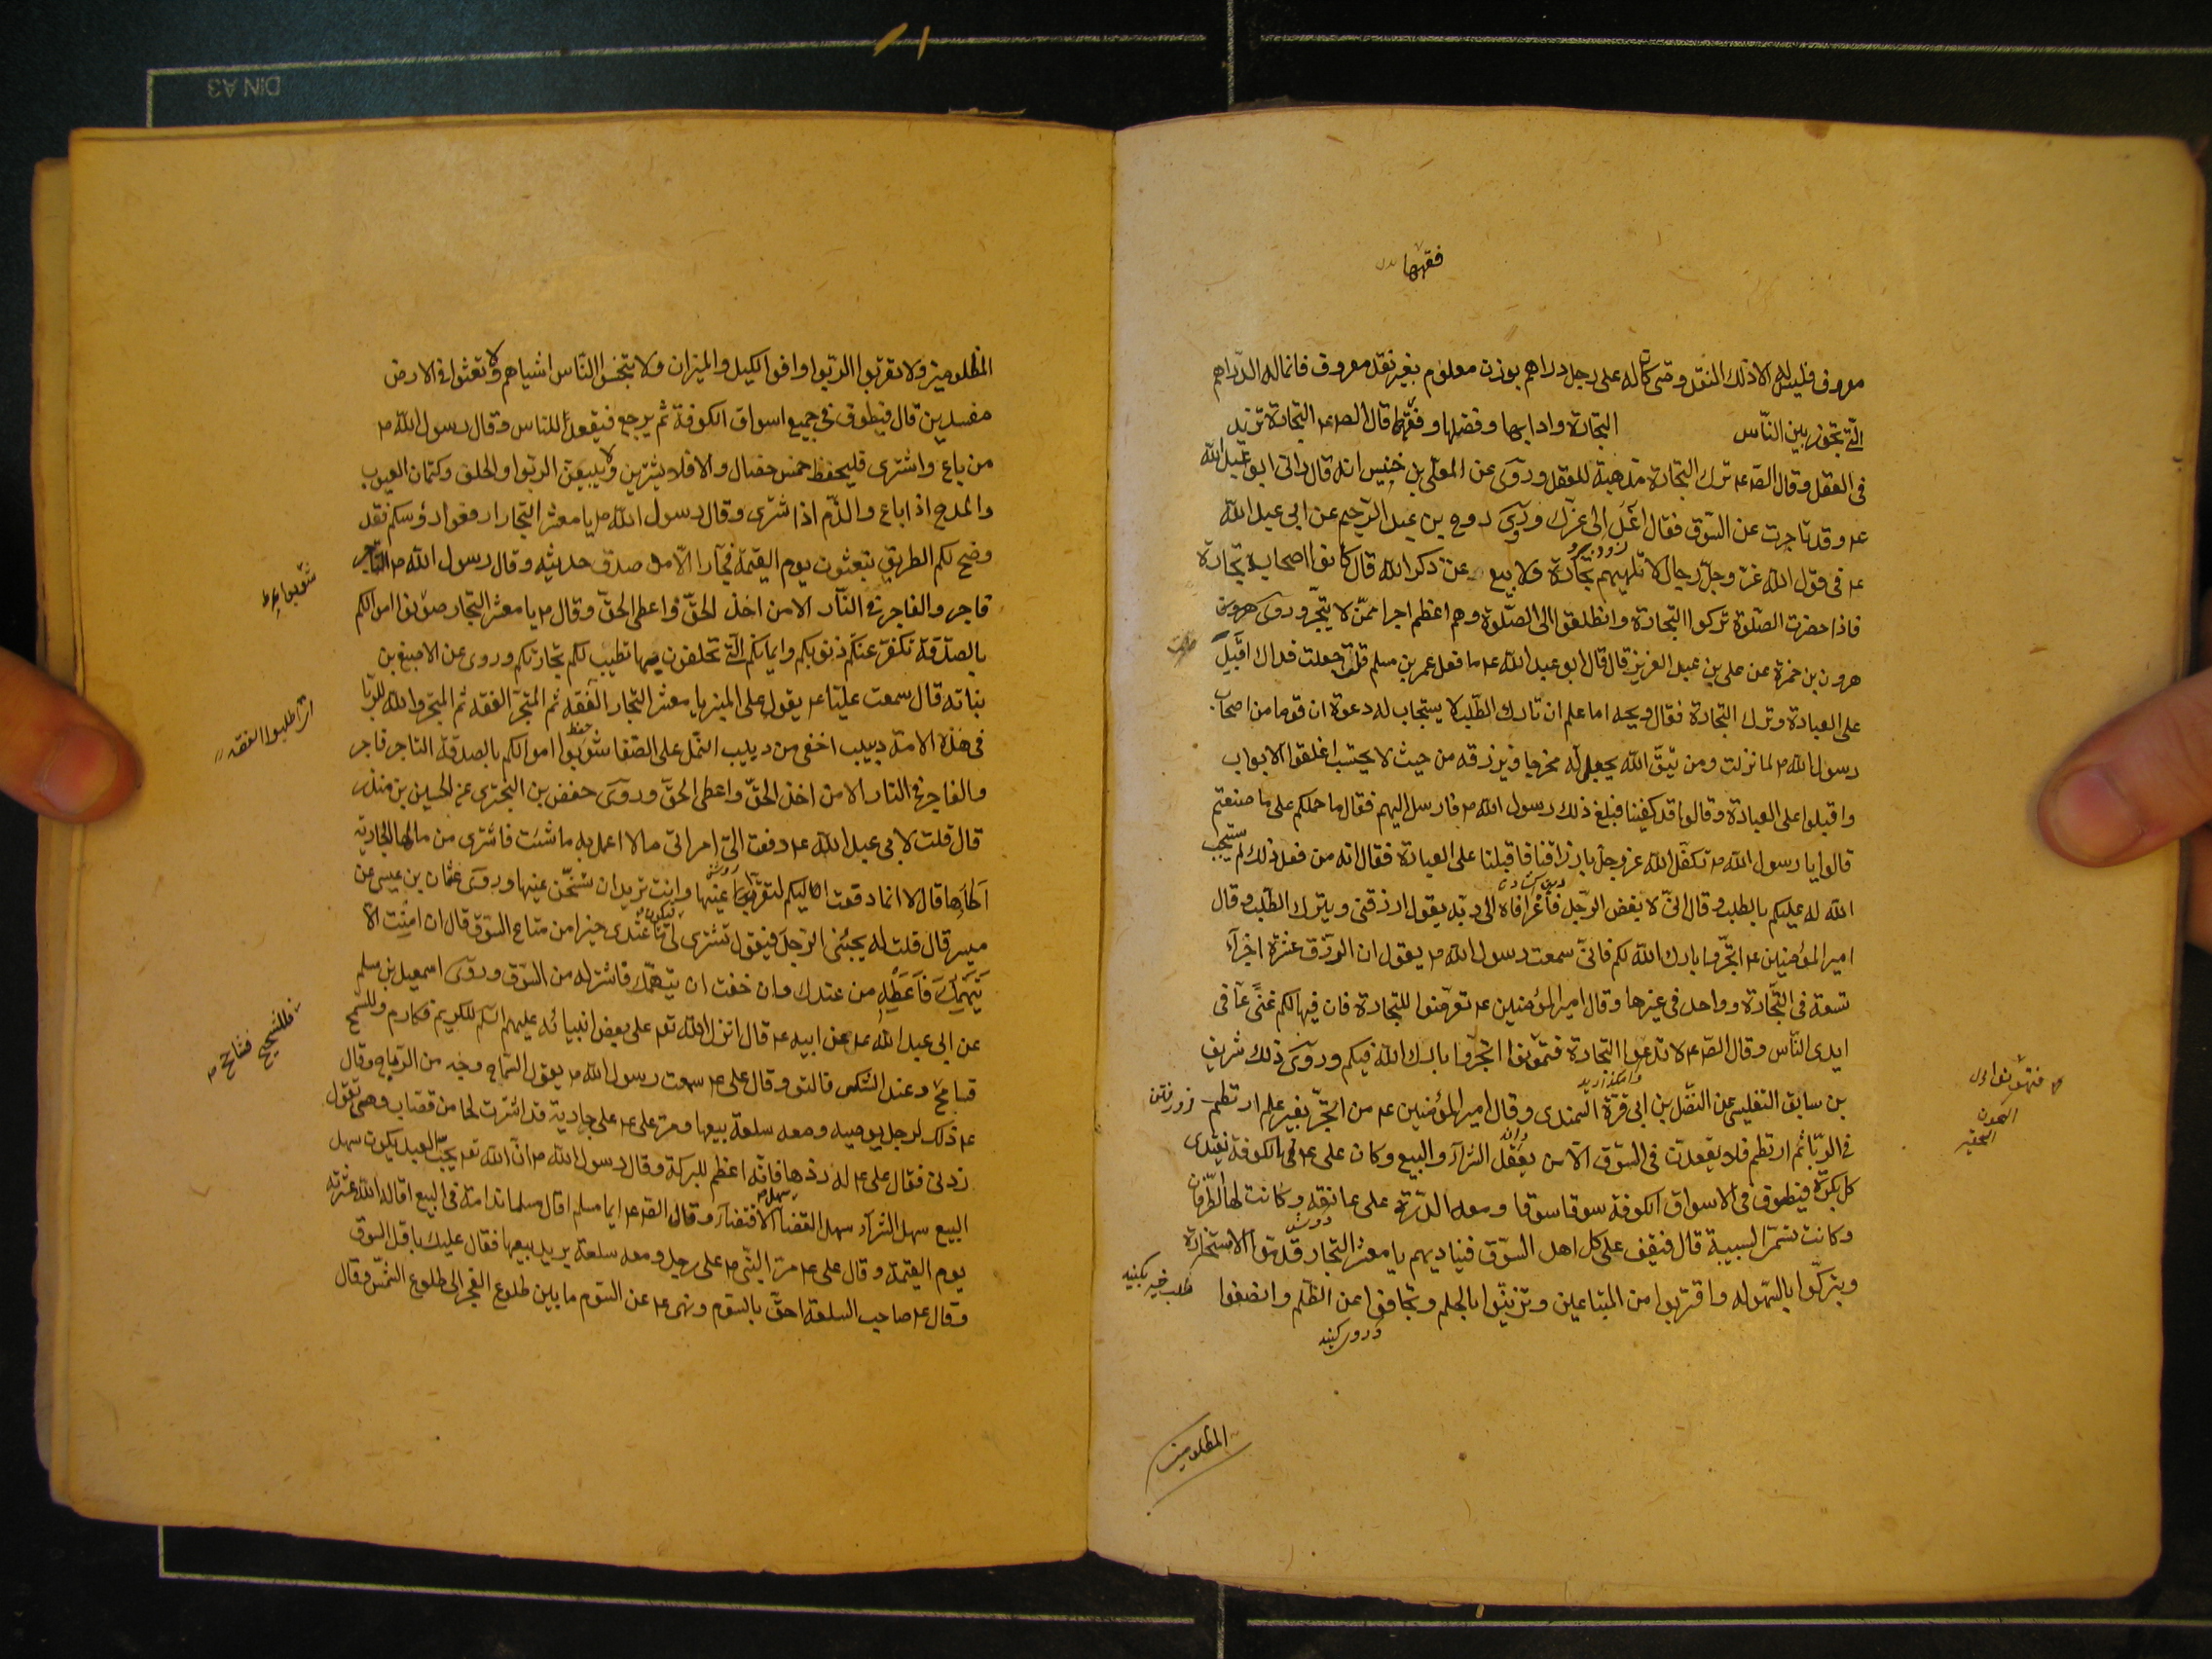 فقهها
معروف فليس له الا ذلك النقد ومتى كان له على رجل دراهم بوزن معلوم بغير نقد معروف فانما له الدراهم
التى تجوز بين الناس التجارة وادابها وفضلها وفقهها قال الص ع التجارة تزيد
فى العقل وقال الص ع ترك التجارة مذهبة للعقل وروى عن المعلى بن خنيس انه قال رانى ابو عبد الله
ع وقد تاخرت عن السوق فقال اغد الى عزك وروى روح بن عبد الرحيم عن ابى عبد الله
ع فى قول الله عز وجل رجال لا تلهيهم تجارة ولا بيع عن ذكر الله قال كانوا اصحاب تجارة
فاذا حضرت الصلوة تركوا التجارة وانطلقوا الى الصلوة وهم اعظم اجرا ممن لا يتجر وروى هرون
هرون بن حمزة عن على بن عبد العزيز قال قال ابو عبد الله ع ما فعل عمر بن مسلم قلت جعلت فداك اقبل
على العبادة وترك التجارة فقال ويحه اما علم ان تارك الطلب لا يستجاب له دعوة ان قوما من اصحاب
رسول الله ص لما نزلت ومن يتق الله يجعل له مخرجا ويرزقه من حيث لا يحتسب اغلقوا الابواب
واقبلوا على العبادة وقالوا قد كفينا فبلغ ذلك رسول الله ص فارسل اليهم فقال ما حملكم على ما صنعتم
قالوا يا رسول الله ص تكفل الله عز وجل بارزاقنا فاقبلنا على العبادة فقال انه من فعل ذلك لم يستجب
الله له عليكم بالطلب وقال انى لا بغض الرجل فاغرا فاه الى ربه يقول ارزقنى ويترك الطلب وقال
امير المؤمنين ع اتجروا بارك الله لكم فانى سمعت رسول الله ص يقول ان الرزق عشرة اجزآء
تسعة فى التجارة وواحد فى غيرها وقال امير المؤمنين ع تعرضوا للتجارة فان فيها لكم غنى عما فى
ايدى الناس وقال الص ع لا تدعوا التجارة فتهونوا اتجروا بارك الله فيكم وروى ذلك شريف
بن سابق التفليسى عن الفضل بن ابى قرة السمندى وقال امير المؤمنين ع من اتجر بغير علم ارتطم
فى الربا ثم ارتطم فلا يقعدن فى السوق الا من يعقل الشرآء والبيع وكان على ع فى الكوفة يغتدى
كل بكرة فيطوف فى الاسواق الكوفة سوقا سوقا ومعه الدرة على عاتقه وكانت لها طرفان
وكانت تسمى السبيبة قال فيقف على كل اهل السوق فيناديهم يا معشر التجار قدموا الاستخارة
وتبركوا بالسهولة واقتربوا من المبتاعين وتزينوا بالحلم وتجافوا عن الظلم وانصفوا
فتهونوا
طلب خير بكنيد
دور كنيد
المظلومين
المظلومين ولا تقربوا الربوا وافوا الكيل والميزان ولا تبخسوا الناس اشياهم ولا تعثوا فى الارض
مفسدين قال فيطوف فى جميع اسواق الكوفة ثم يرجع فيقعد للناس وقال رسول الله ص
من باع واشترى فليحفظ خمس خصال والا فلا يشترين ولا يبيعن الربوا والحلف وكتمان العيوب
والمدح اذا باع والذم اذا شترى وقال رسول الله ص يا معشر التجار ارفعوا رؤسكم فقد
وضح لكم الطريق تبعثون يوم القيمة فجارا الا من صدق حديثه وقال رسول الله ص التاجر
فاجر والفاجر فى النار الا من اخذ الحق واعطى الحق وقال ص يا معشر التجار صونوا اموالكم
بالصدقة تكفر عنكم ذنوبكم وايمانكم التى تحلفون فيها تطيب لكم تجارتكم وروى عن الاصبغ بن
نباته قال سمعت عليا ع يقول على المنبر يا معشر التجار الفقه ثم المتجر الفقه ثم المتجر والله للربا
فى هذه الامة دبيب اخفى من دبيب النمل على الصفا شوبوا اموالكم بالصدقة التاجر فاجر
والفاجر فى النار الا من اخذ الحق واعطى الحق وروى حفص بن البخترى عن الحسين بن منذر
قال قلت لابى عبد الله ع دفعت الى امراتى مالا اعمل به ما شئت فاشترى من مالها الجارية
اطاها قال لا انما دفعت اليكم لتقر بها عينها وانت تريد ان تسخن عينها وروى عثمان بن عيسى عن
ميسر قال قلت له يجيئنى الرجل فيقول تشترى لى فيكون ما عندى خيرا من متاع السوق قال ان امنت الا
يتهمك فاعطه من عندك وان خفت ان يتهمك فاشتر له من السوق وروى اسمعيل بن مسلم
عن ابى عبد الله ع عن ابيه ع قال انزل الله تع على بعض انبيائه عليهم السلم للكريم فكارم وللسمح
فسامح وعند الشكس فالتو وقال على ع سمعت رسول الله ص يقول السماح وجه من الرباح وقال
ع ذلك لرجل يوصيه ومعه سلعة يبيعها ومر على ع على جارية قد اشترت لحما من قصاب وهى تقول
زدنى فقال على ع له زدها فانه اعظم للبركة وقال رسول الله ص ان الله تع يحب العبد يكون سهل
البيع سهل الشرآء سهل القضآء سهل الاقتضآء وقال الص ع ايما مسلم اقال مسلما ندامة فى البيع اقاله الله عثرته
يوم القيمة وقال على ع مر النبى ص على رجل ومعه سلعة يريد بيعها فقال عليك باول السوق
وقال ع صاحب السلعة احق بالسوم ونهى ع عن السوم ما بين طلوع الفجر الى طلوع الشمس وقال
شوبوا
اى اطلبوا الفقه
فللشحيح فشاحح